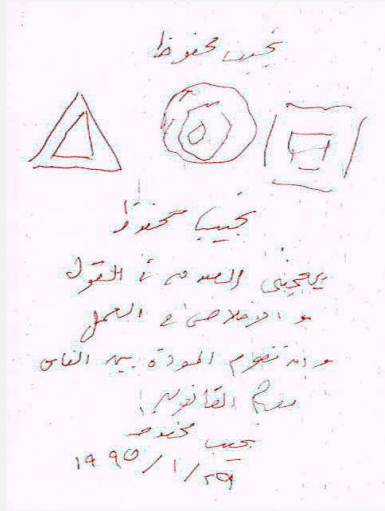 نجيب محفوظ
نجيب محفوظ
يعجبنى الصدق فى القول
والإخلاص فى العمل
وان تقوم المودة بين الناس
القانون!
نجيب محفوظ
١٩٩٥/١/٢٩